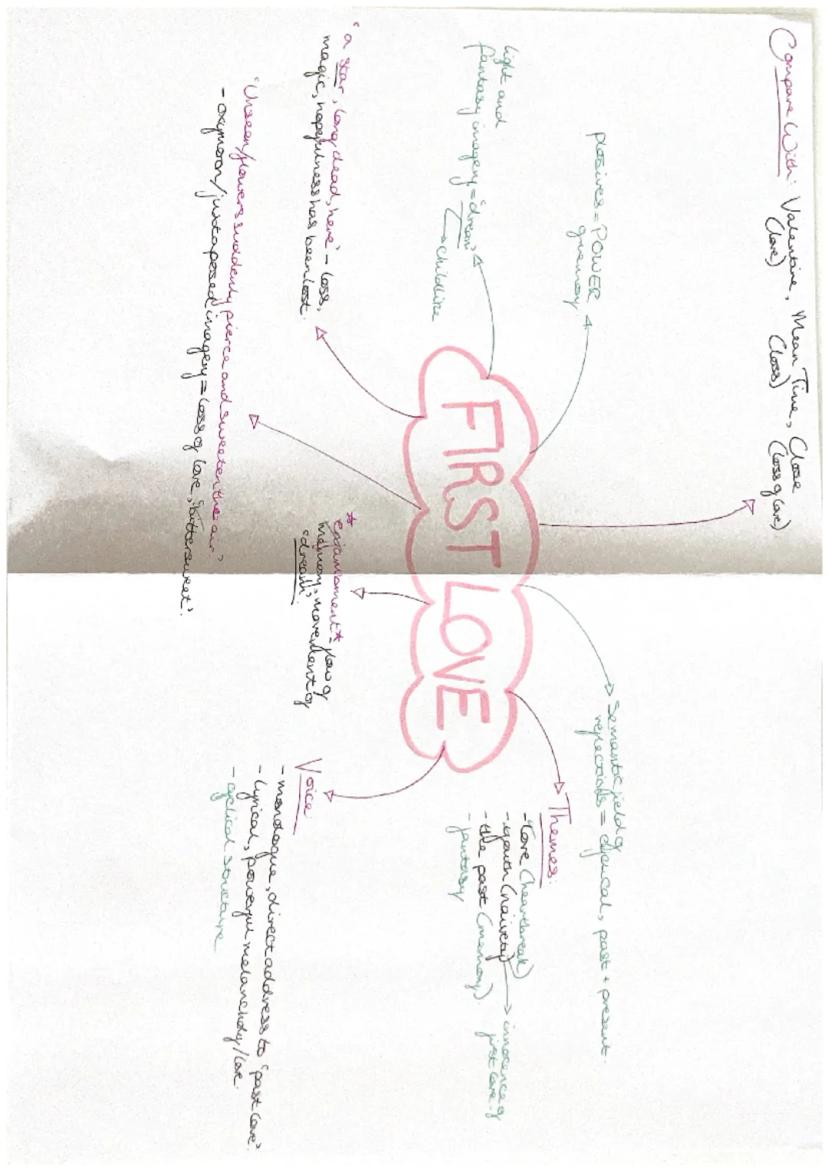 Compare With: Valentine, Mean Time, Close
(love) (loss) (loss of love)
plosives = POWER
greway
light and
fantasy imagery = "dream"
→ childlike
"a star, long dead, here" - loss,
magic, hopefulness has been lost.
"Unseen/flowers suddenly pierce and sweeten the air"
- oxymoron/juxtaposed imagery = loss of love, 'bittersweet'.
FIRST LOVE
*enjambment* = flow of
memory, movement of
"dream"
Semantic field of
reflections = cyclical, past + present.
Themes:
- Love (heartbreak)
- youth (naivety) → innocence of
first love
- the past (memory)
- fantasy
Voice
- monologue, direct address to 'past love'.
- lyrical, powerful melancholy/love.
- cyclical structure